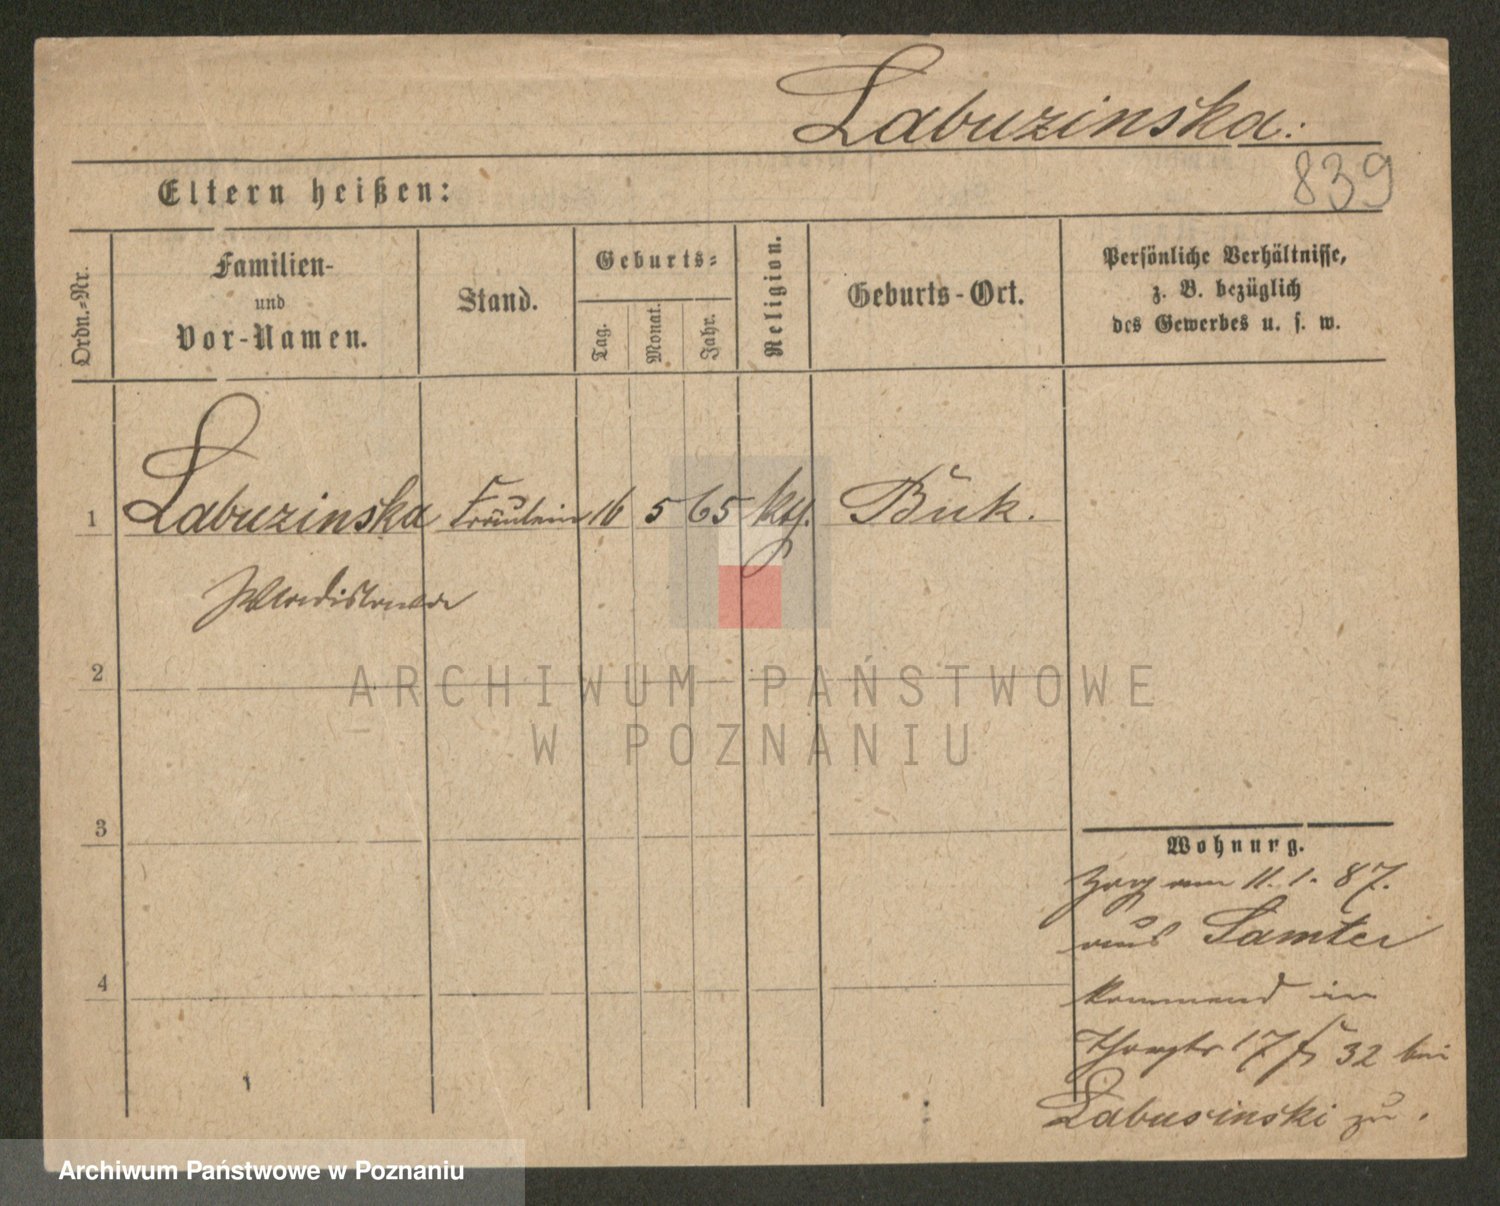 Labuzinska:
839
Eltern heißen:
Ordn.-Nr.
Familien-
und
Vor-Namen.
Stand.
Geburts-
Tag.
Monat.
Jahr.
Religion.
Geburts-Ort.
Persönliche Verhältnisse,
z. B. bezüglich
des Gewerbes u. s. w.
1 Labuzinska Fräulein 16 5 65 kth. Buk.
Wladislawa
2
3
4
Wohnung.
Zog am 11.1.87.
aus Samter
kommend in
17 32 bei
Labusinski zu.
ARCHIWUM PAŃSTWOWE
W POZNANIU
Archiwum Państwowe w Poznaniu